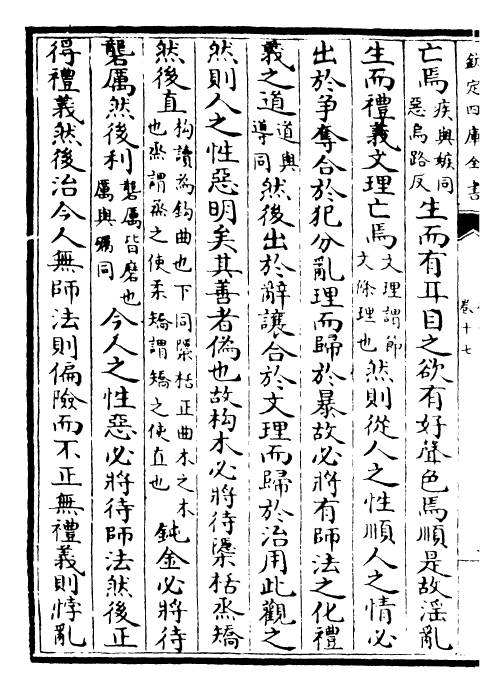 欽定四庫全書
卷十七
亡焉疾與嫉同惡烏路反生而有耳目之欲有好聲色焉順是故淫亂
生而禮義文理亡焉文理謂節文條理也然則從人之性順人之情必
出於争奪合於犯分亂理而歸於暴故必將有師法之化禮
義之道道與導同然後出於辭讓合於文理而歸於治用此觀之
然則人之性惡明矣其善者偽也故枸木必將待檃栝烝矯
然後直枸讀為鉤曲也下同檃栝正曲木之木也烝謂烝之使柔矯謂矯之使直也鈍金必將待
礱厲然後利礱厲皆磨也厲與礪同今人之性惡必將待師法然後正
得禮義然後治今人無師法則偏險而不正無禮義則悖亂